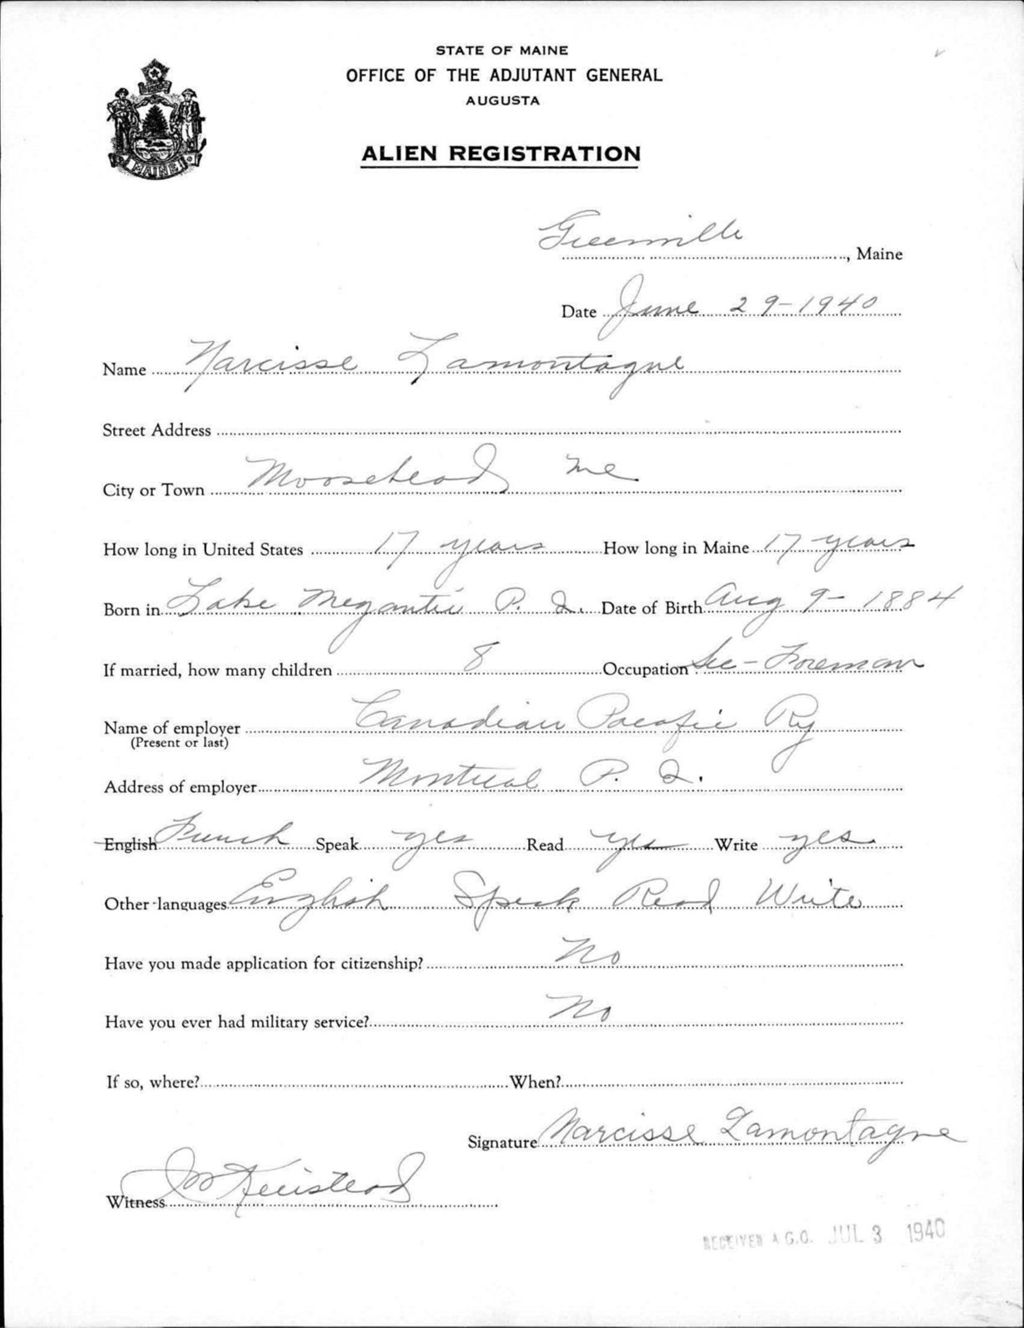 STATE OF MAINE
OFFICE OF THE ADJUTANT GENERAL
AUGUSTA
ALIEN REGISTRATION
MAINE
Greenville, Maine
Date June 29-1940
Name Narcisse Lamontagne
Street Address
City or Town Moosehead Me
How long in United States 17 years How long in Maine 17 years
Born in Lake Megantic P. Q. Date of Birth Aug 9-1884
If married, how many children 8 Occupation Sec-Foreman
Name of employer Canadian Pacific Ry
(Present or last)
Address of employer Montreal P. Q.
English French Speak yes Read yes Write yes
Other languages English Speak Read Write
Have you made application for citizenship? No
Have you ever had military service? No
If so, where? When?
Signature Narcisse Lamontagne
Witness
RECEIVED A.G.O. JUL 3 1940